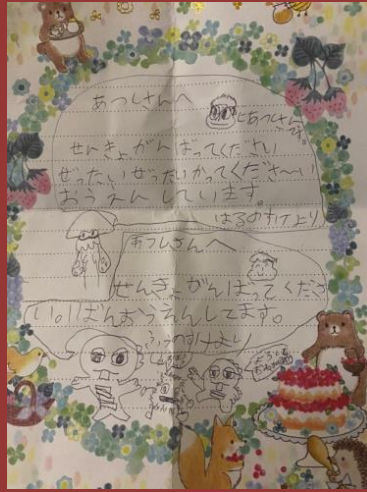 あつしさんへ
あつさん
です。
せんきょがんばってください
ぜったいぜったいかってくださ〜い
おうえんしています。
はるのすけより
あつしさんへ
せんきょがんばってくださ
い。いちばんおうえんしてます。
ふうのすけより